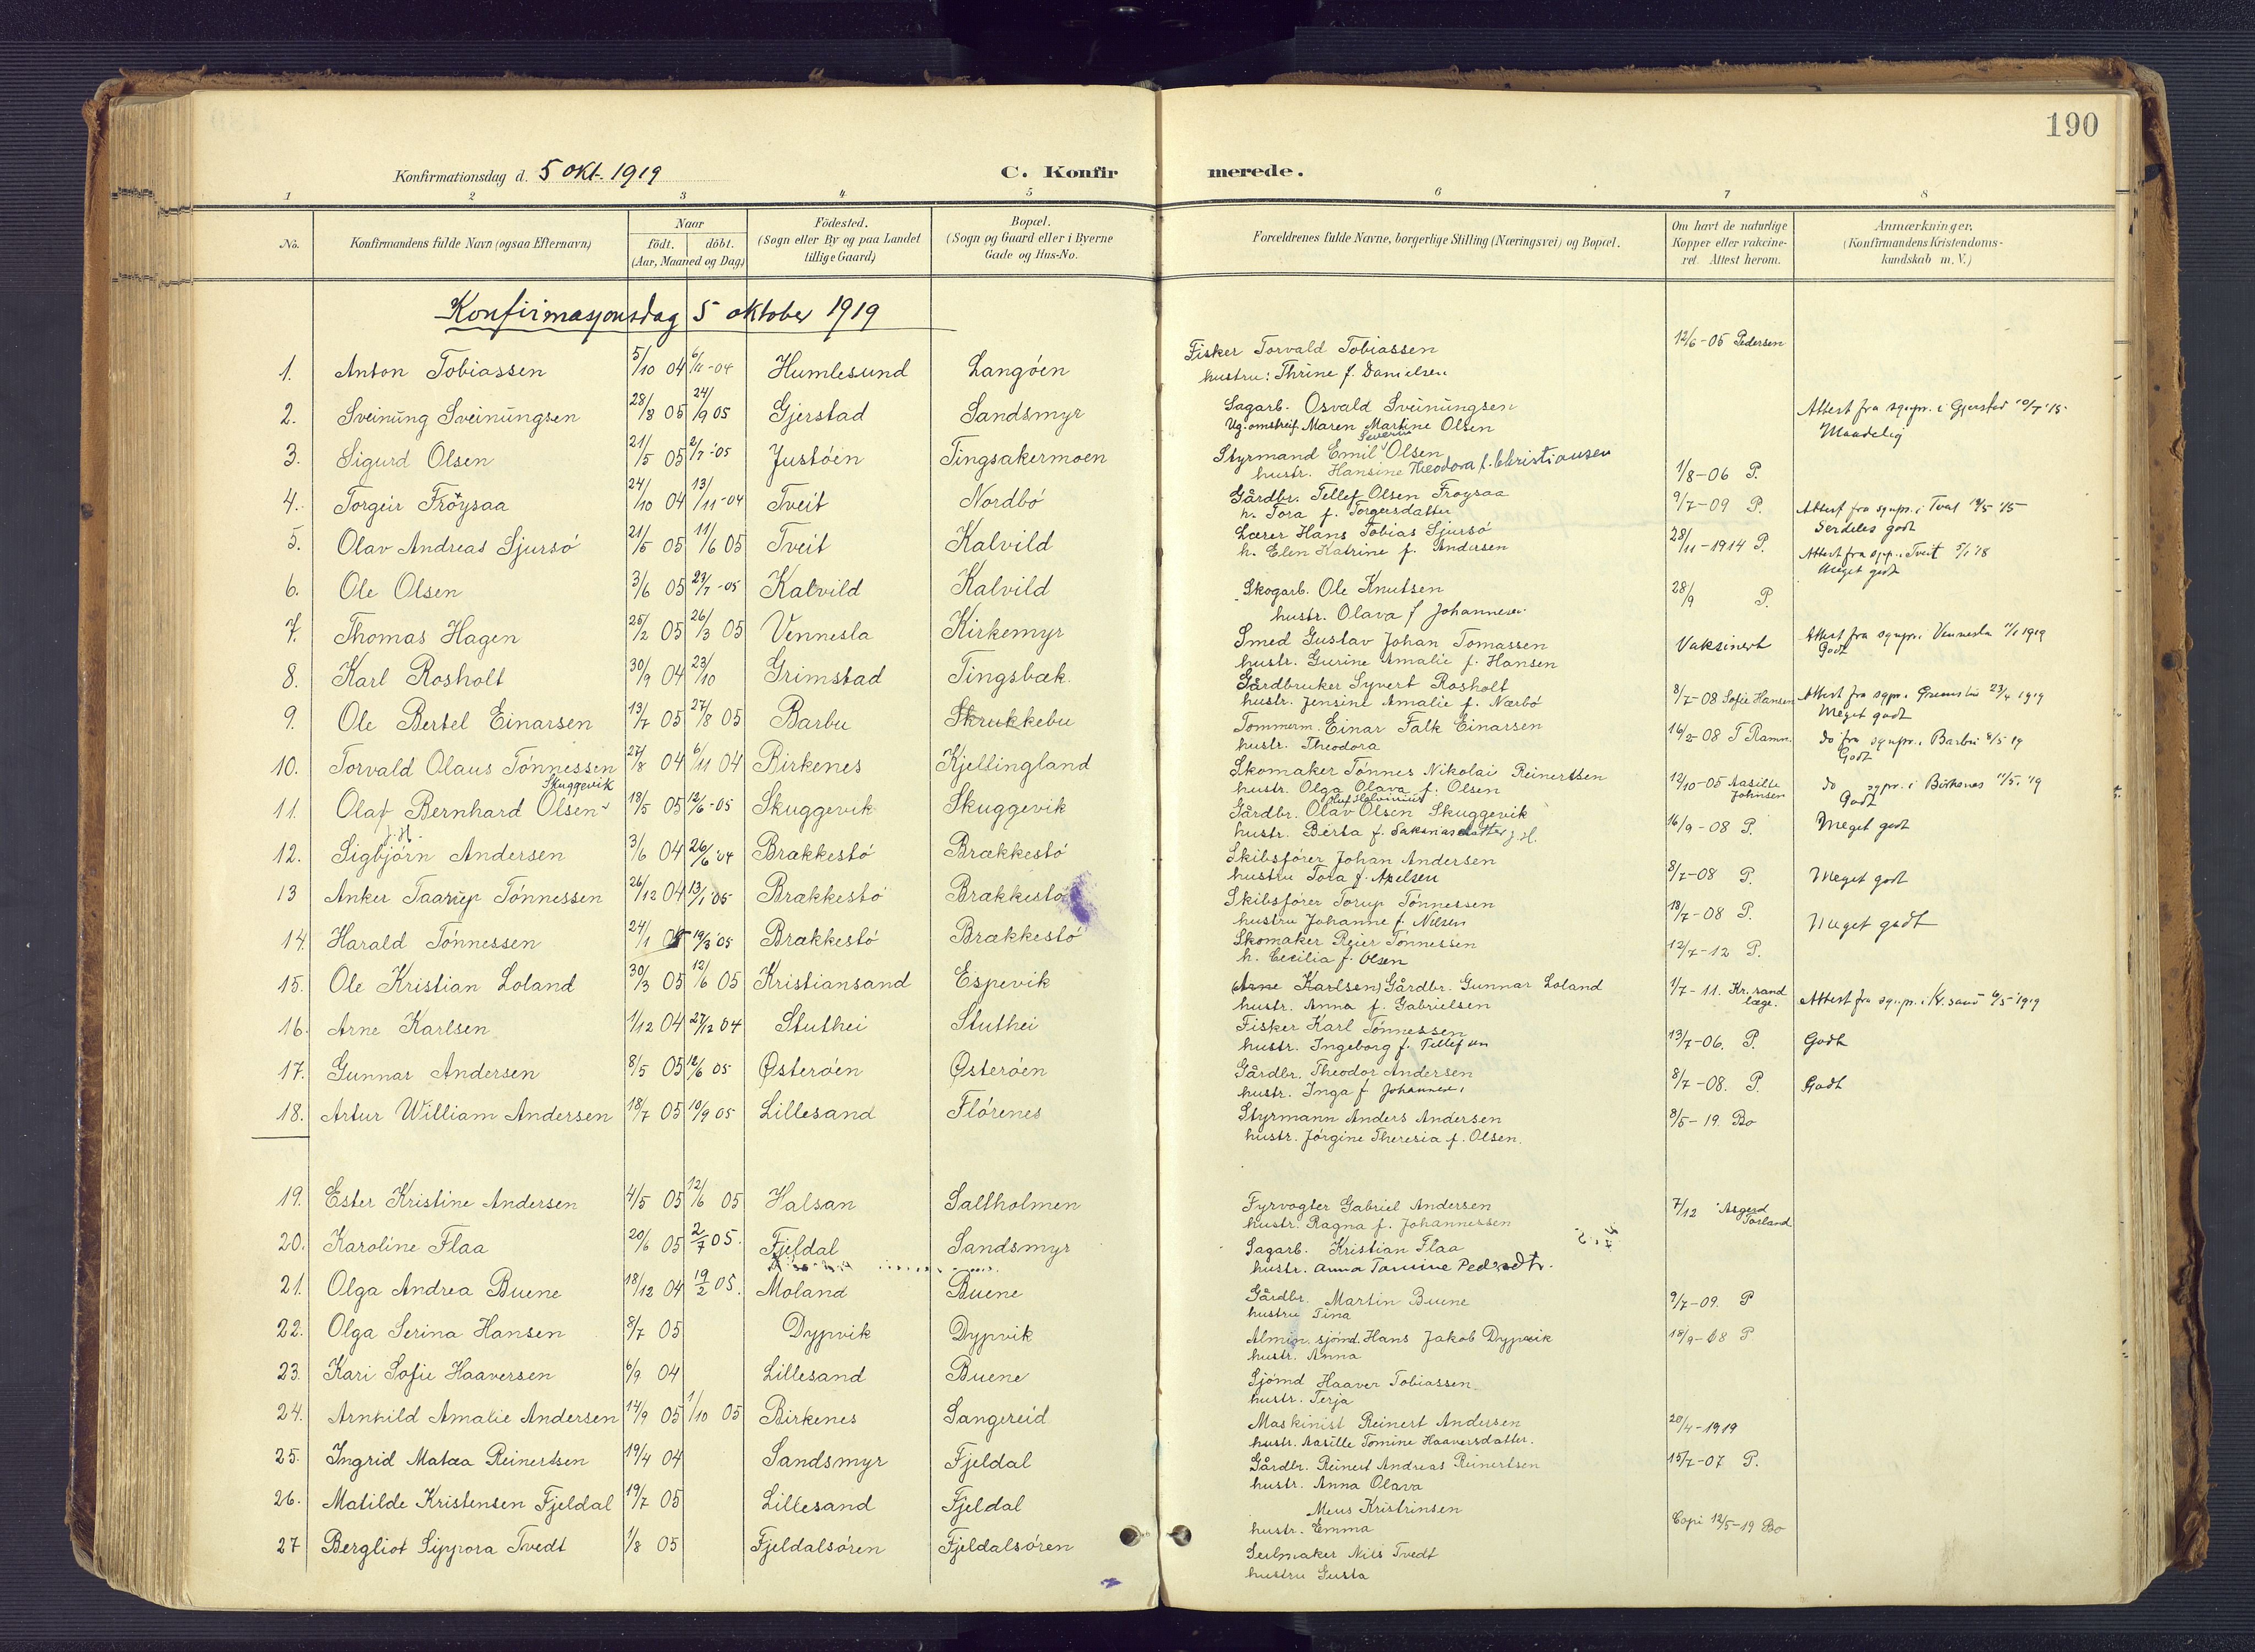 190
Konfirmationsdag d. 5 okt. 1919
C. Konfirmerede.
1 2 3 4 5 6 7 8
No.
Konfirmandens fulde Navn (ogsaa Efternavn)
Naar
födt. döbt.
(Aar, Maaned og Dag)
Födested.
(Sogn eller By og paa Landet
tillige Gaard)
Bopæl.
(Sogn og Gaard eller i Byerne
Gade og Hus-No.
Forældrenes fulde Navne, borgerlige Stilling (Næringsvei) og Bopæl.
Om havt de naturlige
Kopper eller vakcine-
ret. Attest herom.
Anmærkninger.
(Konfirmandens Kristendoms-
kundskab m. V.)
Konfirmasjonsdag 5 oktober 1919
1. Anton Tobiassen 5/10 04 6/11-04 Humlesund Langöen Fisker Torvald Tobiassen 12/6-05 Pedersen
hustru: Thrine f. Danielsen
2. Sveinung Sveinungsen 28/8 05 24/9 05 Gjerstad Sandsmyr Sagarb. Osvald Sveinungsen Attest fra sognpr. i Gjerstad 10/7 '15
Ug. omstreif. Maren Martine Olsen Maadelig
3. Sigurd Olsen 21/5 05 2/7-05 Justöen Tingsakermoen Styrmand Emil Severin Olsen
hustr. Hansine Theodora f. Christiansen 1/8-06 P.
4. Torgeir Fröysaa 24/10 04 13/11-04 Tveit Nordbö Gårdbr. Tellef Olsen Froysaa 9/7-09 P.
h. Tora f. Torgersdatter Serdeles godt
5. Olav Andreas Sjursö 21/5 05 11/6 05 Tveit Kalvild Lærer Hans Tobias Sjursö 28/11-1914 P.
h. Elen Katrine f. Andersen Meget godt
6. Ole Olsen 3/6 05 23/7-05 Kalvild Kalvild Skogarb. Ole Knutsen 28/9 P.
hustr. Olava f Johannesen
7. Thomas Hagen 25/2 05 26/3 05 Vennesla Kirkemyr Smed Gustav Johan Tomassen Vaksinert Attest fra sognpr. i Vennesla 11/1 1919
hustr. Gurine Amalie f. Hansen Godt
8. Karl Rosholt 30/9 04 23/10 Grimstad Tingsbæk. Gårdbruker Syvert Rosholt
hustr. Jensine Amalie f. Nærbö 8/7-08 Sofie Hansen Meget godt
9. Ole Bertel Einarsen 13/7 05 27/8 05 Barbu Skrukkebu Tommerm. Einar Falk Einarsen 16/2-08 T Ramn. do fra sognpr. i Barbu 8/5 19
hustr. Theodora Godt
10. Torvald Olaus Tönnessen 27/8 04 6/11 04 Birkenes Kjellingland Skomaker Tönnes Nikolai Reinertsen 12/10-05 Aasille Johnsen do sognpr. i Birkenes 11/5. '19
hustr. Olga Olava f. Olsen Godt
11. Olaf Bernhard Olsen Skuggevik 18/5 05 12/6-05 Skuggevik Skuggevik Gårdbr. Olav Olsen Skuggevik 16/9-08 P. Meget godt
hustr. Berta f. Saknasdatter J. H.
12. Sigbjörn Andersen 3/6 04 26/6 '04 Brækkestö Brækkestö Skibsförer Johan Andersen 8/7-08 P. Meget godt
hustru Tora f. Axelsen
13 Anker Taarup Tönnessen 26/12 04 13/1 '05 Brækkestö Brækkestö Skibsförer Torup Tönnessen 18/7-08 P. Meget godt
hustru Johanne f. Nelsen
14. Harald Tönnessen 24/1 05 19/3 '05 Brækkestö Brækkestö Skomaker Reier Tönnessen 12/7-12 P.
h. Cecilia f. Olsen
15. Ole Kristian Loland 30/3 05 12/6 05 Kristiansand Espevik (Arne Karlsen) Gårdbr. Gunnar Loland 1/7-11. Kr.sand læge. Attest fra sognpr. i Kr.sand 6/5 1919
hustr. Anna f. Gabrielsen
16. Arne Karlsen 1/12 04 27/12 04 Stuthei Stuthei Fisker Karl Tönnessen 13/7-06. P. Godt
hustr. Ingeborg f. Tellefsen
17. Gunnar Andersen 8/5 05 12/6 05 Østeröen Østeröen Gårdbr. Theodor Andersen 8/7-08. P. Godt
hustr. Inga f Johannesen
18. Artur William Andersen 18/7 05 10/9 05 Lillesand Flörenes Styrmann Anders Andersen 8/5-19. Bo
hustr. Jörgine Theresia f. Olsen.
19. Ester Kristine Andersen 4/5 05 12/6 05 Halsan Saltholmen Fyrvogter Gabriel Andersen 7/12 Asgerd Torland
hustr. Ragna f. Johannessen
20. Karoline Flaa 20/6 05 2/7 05. Fjeldal Sandsmyr Sagarb. Kristian Flaa
hustr. Anna Tomine Pedersdtr.
21. Olga Andrea Buene 18/12 04 19/2 05. Moland Buene Gårdbr. Martin Buene 9/7-09. P
hustru Tina
22. Olga Serina Hansen 8/7 05 Dypvik Dypvik Almin. sjömd. Hans Jakob Dypvik 18/9-08 P
hustr. Anna
23. Kari Sofie Haaversen 6/9 04 Lillesand Buene Sjömd Haaver Tobiassen
hustr. Terja
24. Arnhild Amalie Andersen 14/9 05 1/10 05 Birkenes Sangereid Maskinist Reinert Andersen 20/4-1919
hustr. Aasille Tomine Haaversdatter.
25. Ingrid Matæa Reinertsen 19/4 04 Sandsmyr Fjeldal Gårdbr. Reinert Andreas Reinertsen 15/7-07 P.
hustr. Anna Olava
26. Matilde Kristensen Fjeldal 19/7 05 Lillesand Fjeldal Meus Kristrinsen
hustr. Emma Copi 12/5-19 Bo
27 Bergliot Sippora Tvedt 1/8 05 Fjeldalsören Fjeldalsören Seilmaker Nils Tvedt
hustru Gusta